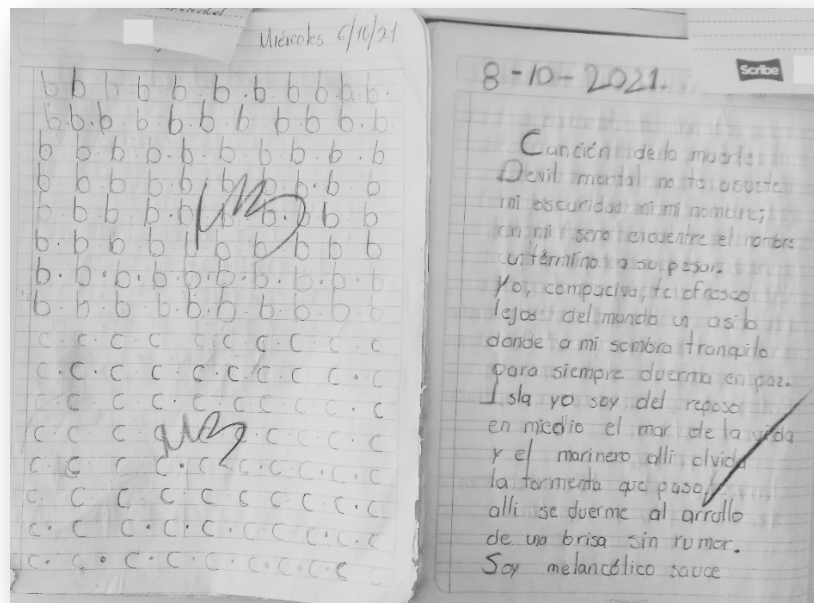 Miércoles 6/10/21
b b b b b b . b b b b b .
b . b . b b . b b b b b b . b .
b b b . b . b . b b b b . b . b
b b b b b b b b . b . b
b b b b . b b b . b b b
b . b b b b b b b b b
b . b . b . b . b . b . b . b b b
b . b b . b . b b . b b b b b
c c c c c c c c c c
c . c . c c c . c . c c c . c
c c c . c c . c c c c . c
c . c c c . c c . c
c . c c c . c c . c . c . c . c
c c c c c c c c . c . c
c . c c . c . c . c c . c . c
c . c . c . c . c c . c . c . c c
8-10-2021.
Scribe
Canción de la muerte
Devil mortal no te asuste
mi oscuridad ni mi nombre;
en mi sero encuentre el hombre
un término a su pesar.
Yo, compaciva, te ofresco
lejos del mundo un asilo
donde a mi sombra tranquila
para siempre duerma en paz.
Isla yo soy del reposo
en medio el mar de la vida
y el marinero alli olvida
la tormenta que paso;
alli se duerme al arrollo
de una brisa sin rumor.
Soy melancólico sauce